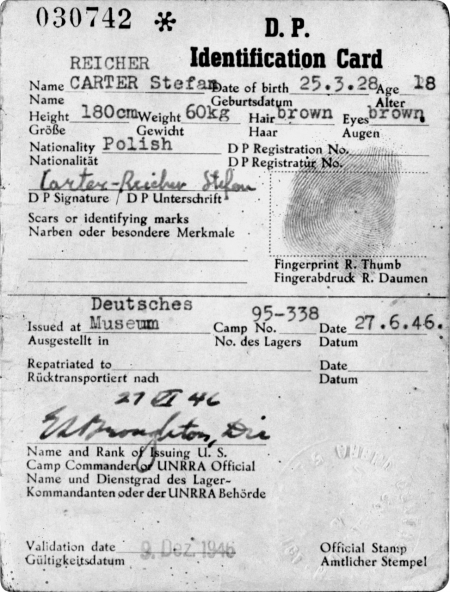 030742 *
D. P.
Identification Card
REICHER
Name CARTER Stefan Date of birth 25.3.28 Age 18
Name Geburtsdatum Alter
Height 180cm Weight 60kg Hair brown Eyes brown
Größe Gewicht Haar Augen
Nationality Polish D P Registration No.
Nationalität D P Registratur No.
Carter-Reicher Stefan
D P Signature / D P Unterschrift
Scars or identifying marks
Narben oder besondere Merkmale
Fingerprint R. Thumb
Fingerabdruck R. Daumen
Deutsches
Issued at Museum Camp No. 95-338 Date 27.6.46.
Ausgestellt in No. des Lagers Datum
Repatriated to Date
Rücktransportiert nach Datum
27 VI 46
Broughton, Dir
Name and Rank of Issuing U. S.
Camp Commander or UNRRA Official
Name und Dienstgrad des Lager-
Kommandanten oder der UNRRA Behörde
Validation date 9. Dez. 1946 Official Stamp
Gültigkeitsdatum Amtlicher Stempel